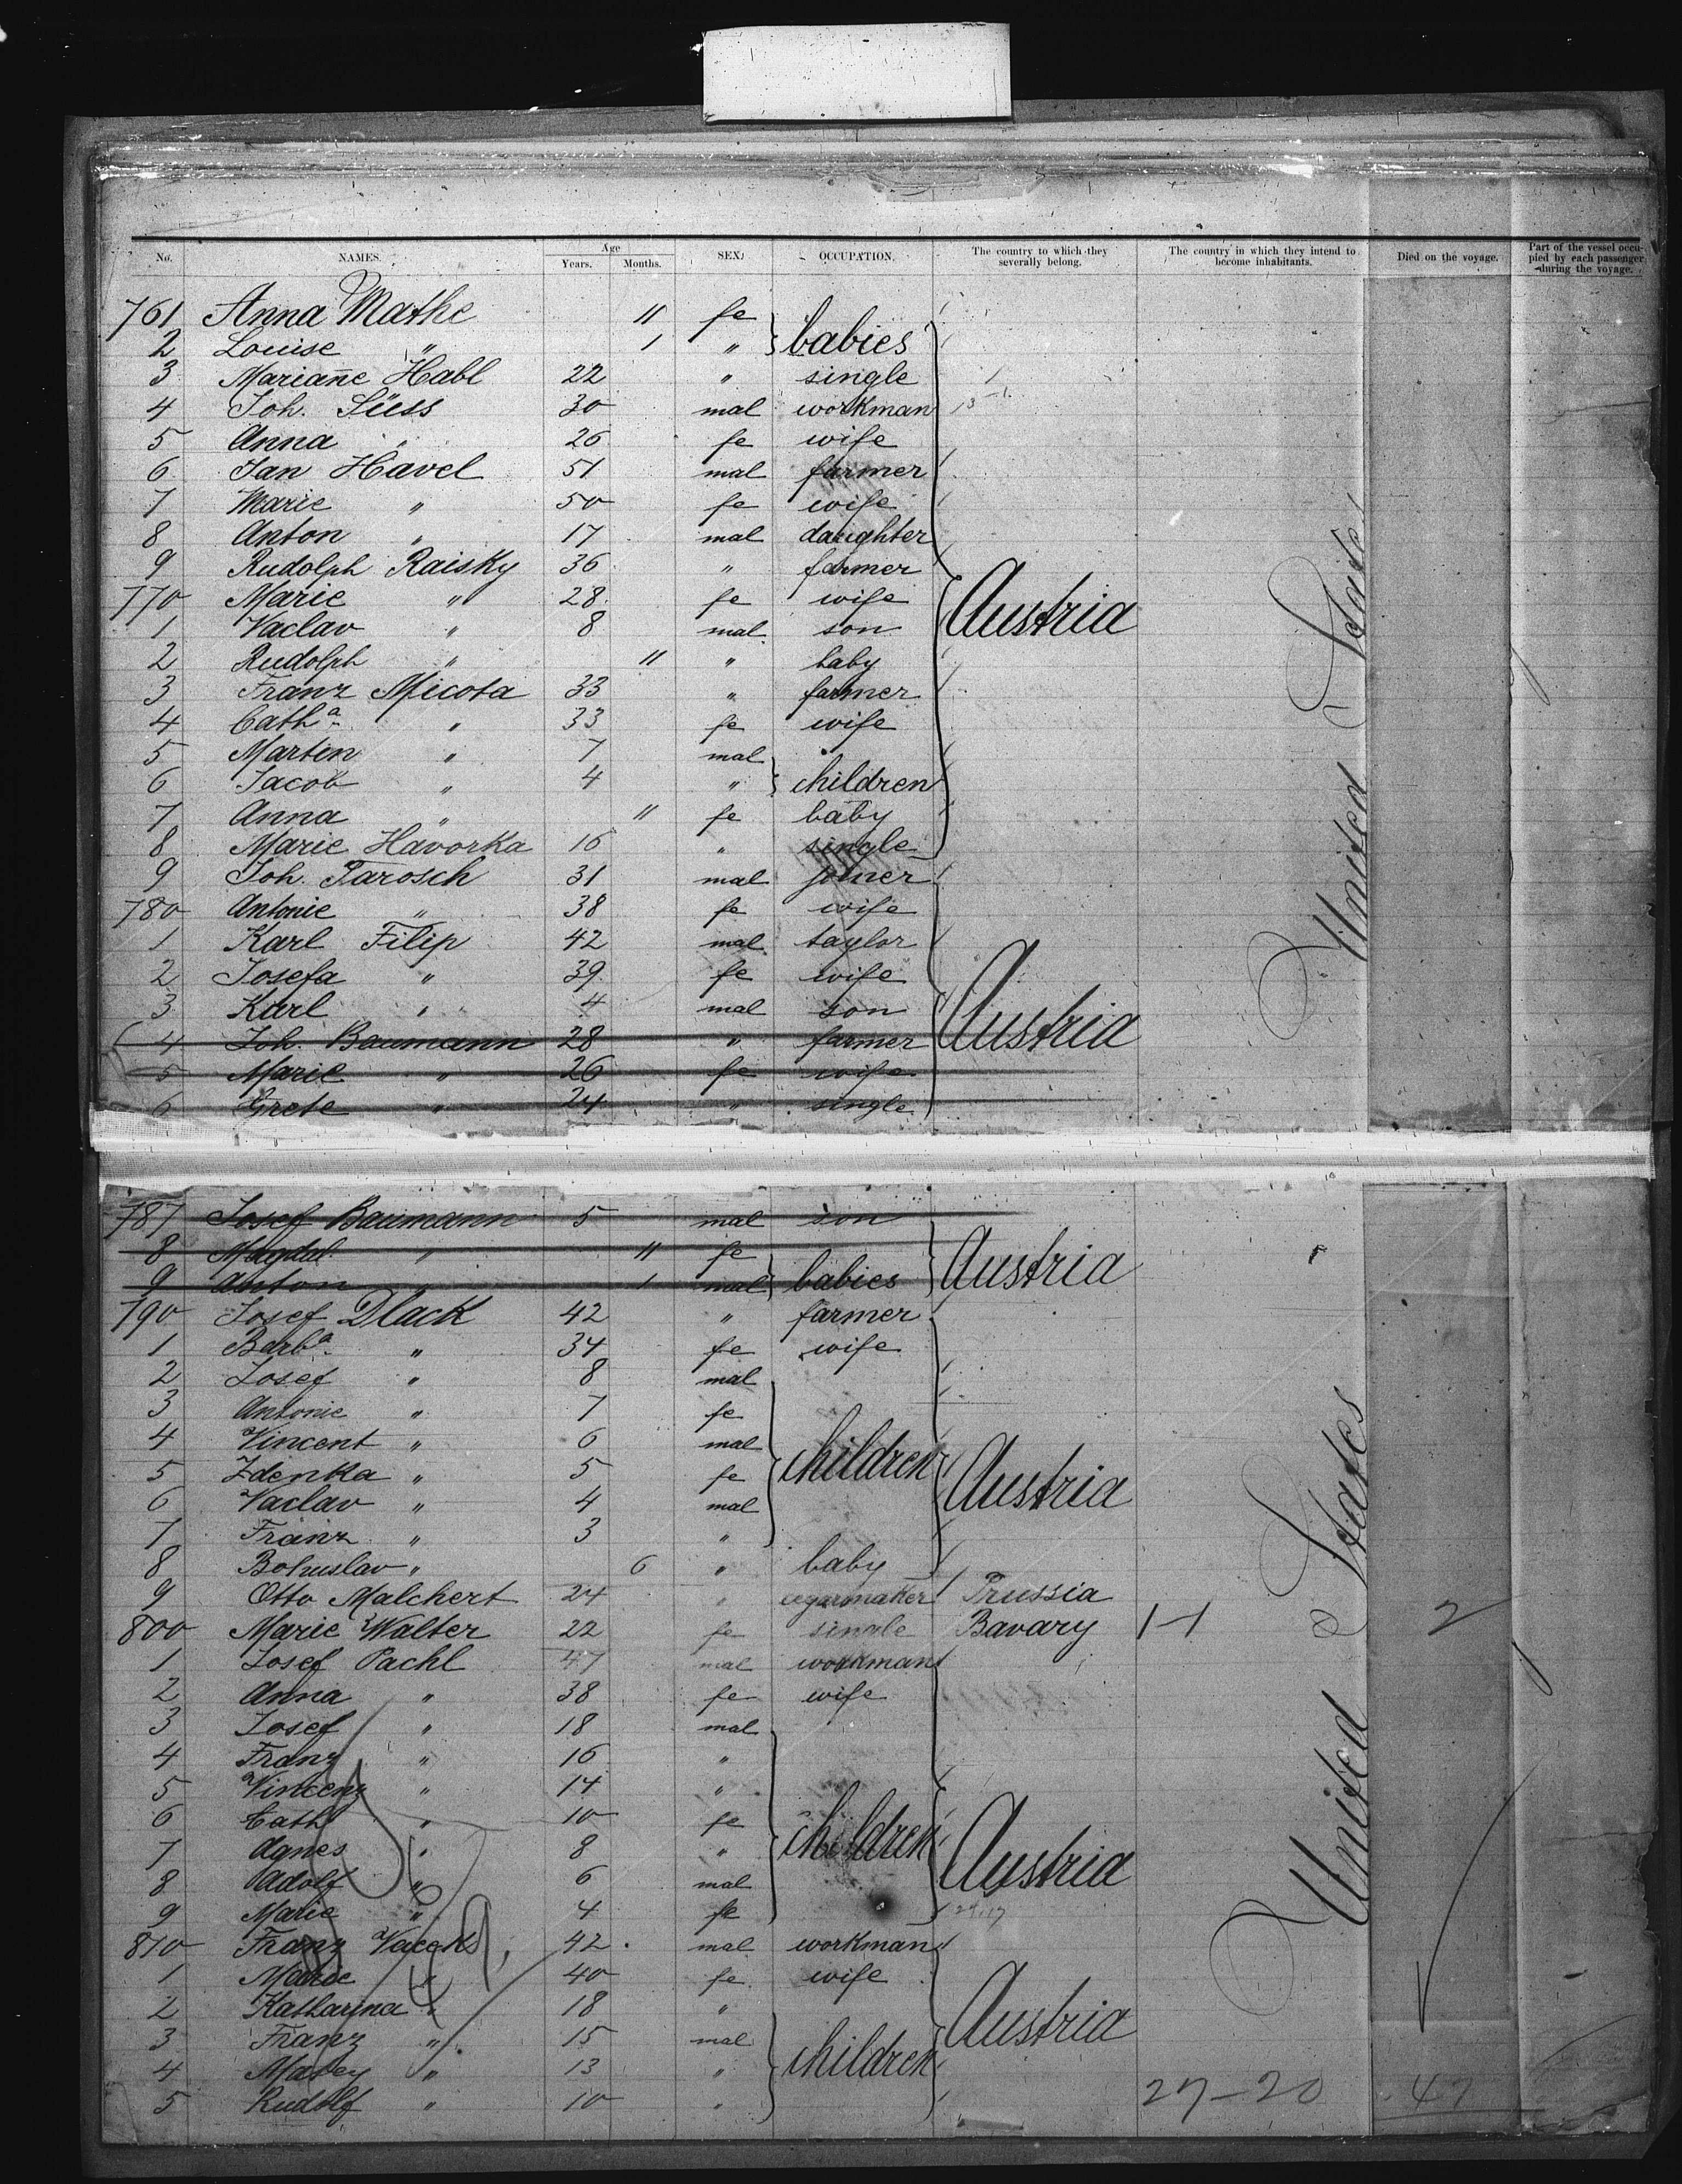 No. NAMES. Age Years. Months. SEX. OCCUPATION. The country to which they severally belong. The country in which they intend to become inhabitants. Died on the voyage. Part of the vessel occupied by each passenger during the voyage.
761 Anna Mathe 11 fe
2 Louise " 1 " babies
3 Mariane Habl 22 " single
4 Joh. Süss 30 mal workman
5 Anna " 26 fe wife
6 Jan Havel 51 mal farmer
7 Marie " 50 fe wife
8 Anton " 17 mal daughter
9 Rudolph Raisky 36 " farmer
770 Marie " 28 fe wife Austria
1 Vaclav " 8 mal son
2 Rudolph " 11 " baby
3 Franz Micota 33 " farmer
4 Cath.a " 33 fe wife
5 Marten " 7 mal
6 Jacob " 4 " children
7 Anna " 11 fe baby
8 Marie Havorka 16 " single
9 Joh. Tarosch 31 mal joiner
780 Antonie " 38 fe wife
1 Karl Filip 42 mal taylor
2 Josefa " 39 fe wife
3 Karl " 4 mal son
4 Joh. Baumann 28 " farmer Austria
5 Marie " 26 fe wife
6 Grete " 24 " single
United States
787 Josef Baumann 5 mal son
8 Magdal. " 11 fe
9 Anton " 1 mal babies Austria
790 Josef Dlack 42 " farmer
1 Barb.a " 34 fe wife
2 Josef " 8 mal
3 Antonie " 7 fe
4 Vincent " 6 mal
5 Zdenka " 5 fe children Austria
6 Vaclav " 4 mal
7 Franz " 3 "
8 Bohuslav " 6 " baby
9 Otto Malchert 24 " cigarmaker Prussia
800 Marie Walter 22 fe single Bavary 1-1 2
1 Josef Pachl 47 mal workman
2 Anna " 38 fe wife
3 Josef " 18 mal
4 Franz " 16 "
5 Vincenz " 14 "
6 Cath " 10 fe
7 Agnes " 8 " children
8 Adolf " 6 mal Austria
9 Marie " 4 fe
810 Franz 42 mal workman
1 Marie " 40 fe wife
2 Katharina " 18 "
3 Franz " 15 mal Austria
4 Matey " 13 " children
5 Rudolf " 10 " 27-20 47
United States